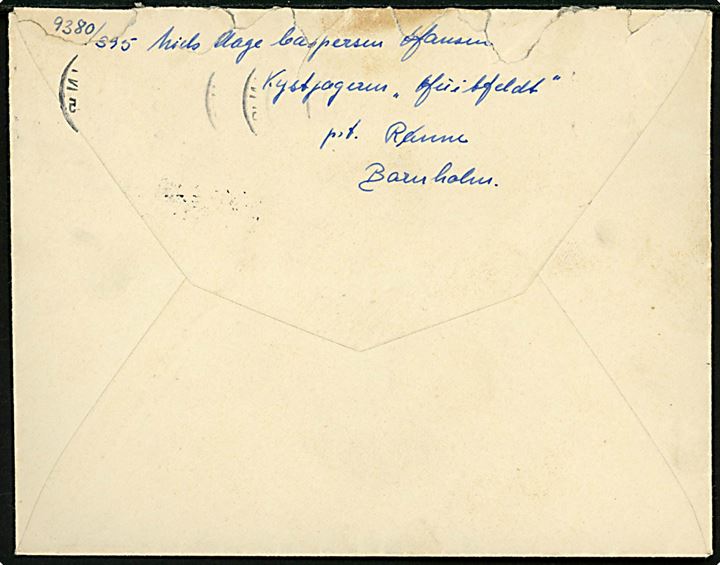 9380/395 Niels Aage Caspersen Hansen
Kystjageren „Huitfeldt“
p.t. Rønne
Bornholm.